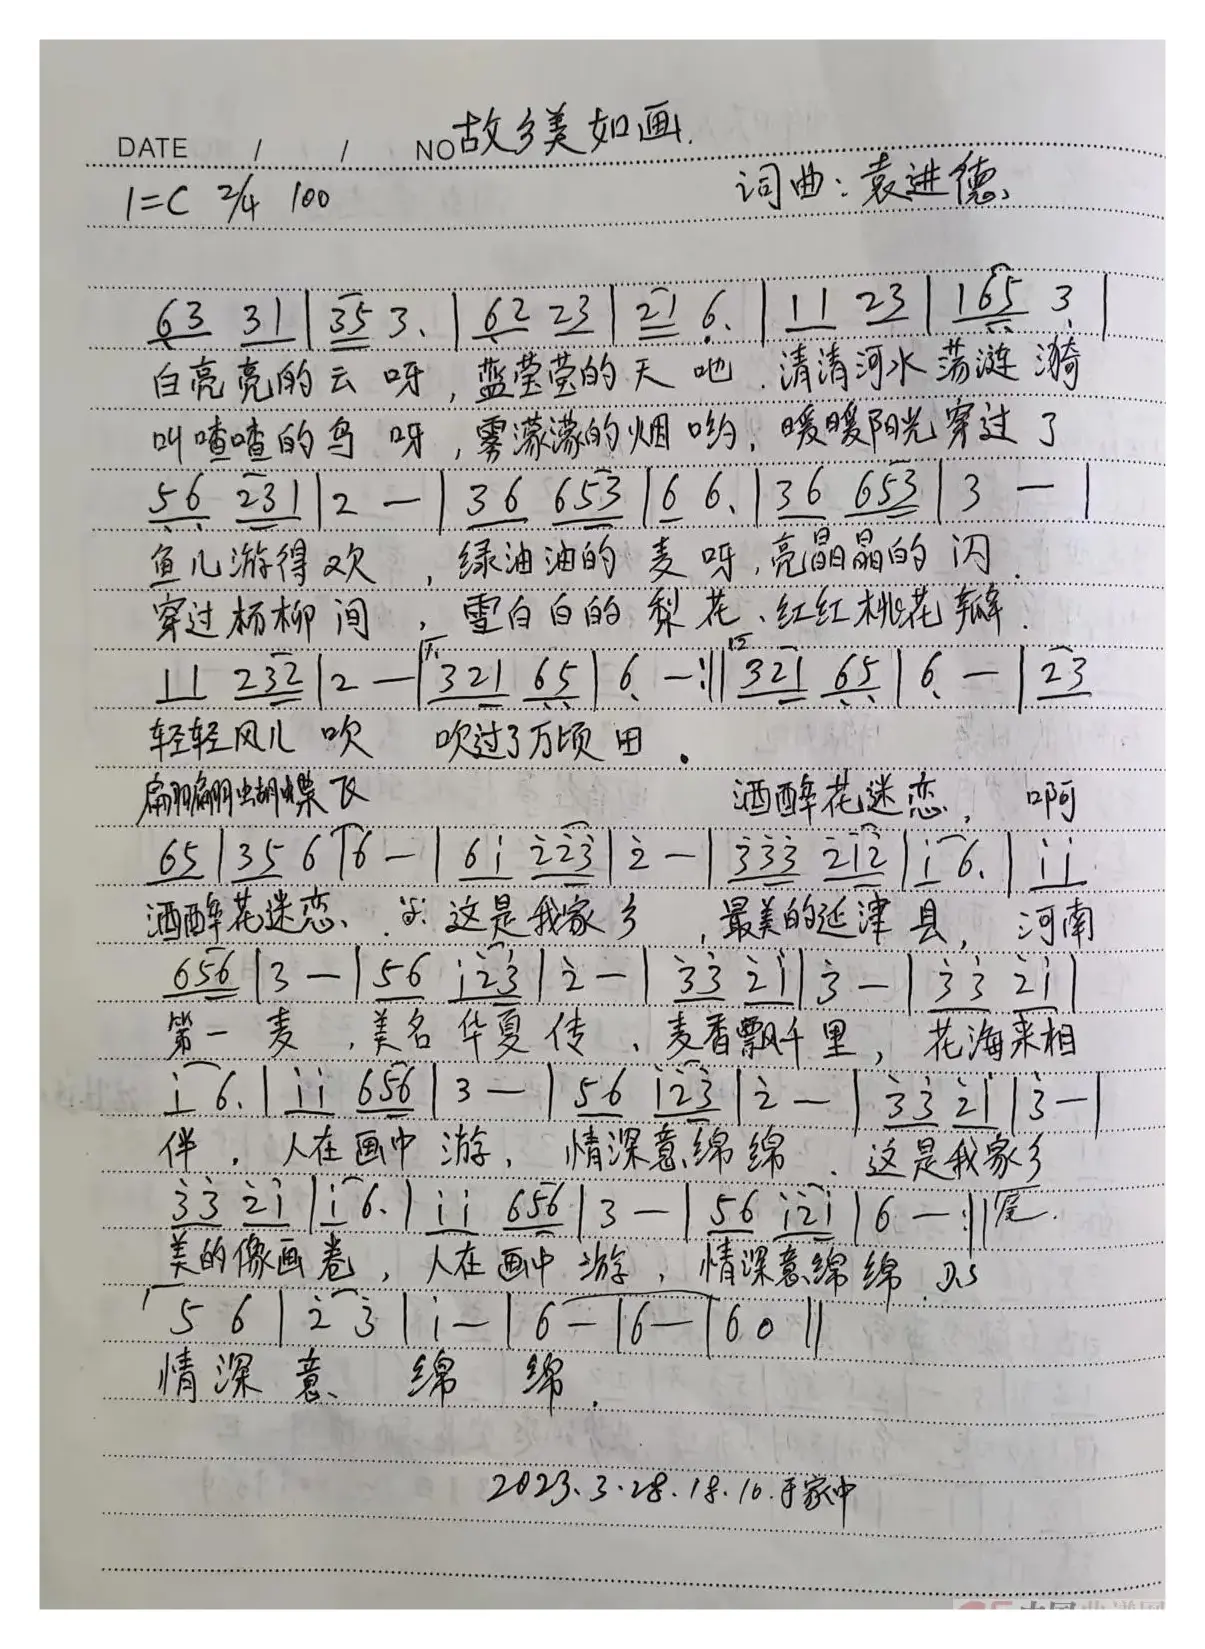 DATE / / NO 故乡美如画.
1=C 2/4 100 词曲:袁进德
63 31 | 35 3. | 62 23 | 21 6. | 11 23 | 165 3. |
白亮亮的云呀,蓝莹莹的天吔.清清河水荡涟漪
叫喳喳的鸟呀,雾濛濛的烟哟,暖暖阳光穿过了
56 231 | 2 — | 36 653 | 6 6. | 36 653 | 3 — |
鱼儿游得欢,绿油油的麦呀,亮晶晶的闪.
穿过杨柳间,雪白白的梨花、红红桃花瓣.
11 232 | 2 — | 321 65 | 6. — :|| 321 65 | 6. — | 23
轻轻风儿吹 吹过了万顷田.
翩翩蝴蝶飞 洒醉花迷恋, 啊
65 | 35 6 | 6 — | 6i 223 | 2 — | 333 212 | i 6. | ii
洒醉花迷恋、 这是我家乡,最美的延津县,河南
656 | 3 — | 56 i23 | 2 — | 33 2i | 3 — | 33 2i |
第一麦,美名华夏传、麦香飘千里,花海来相
i 6. | ii 656 | 3 — | 56 i23 | 2 — | 33 2i | 3 — |
伴.人在画中游,情深意绵绵.这是我家乡
33 2i | i 6. | ii 656 | 3 — | 56 i2i | 6 — :|| 尾.
美的像画卷,人在画中游,情深意绵绵. D.S
5 6 | 2 3 | i — | 6 — | 6 — | 6 0 ||
情深意、绵绵.
2023.3.28.18.10.于家中